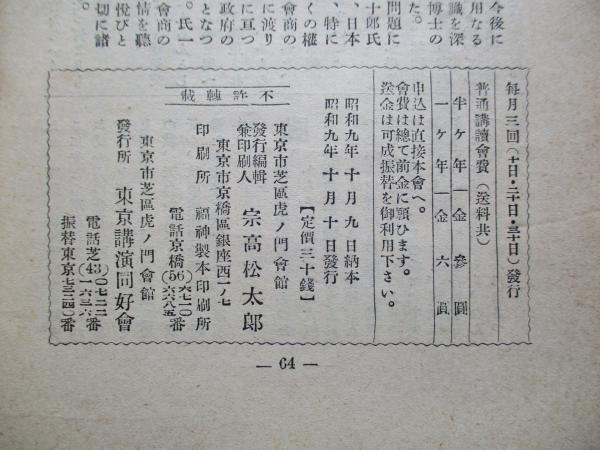 今後に
用なる
識を深
博士の
た。
問題に
十郎氏
、日本
、特に
くの權
會商の
に渡り
に亙つ
政府の
となつ
。氏一
會商の
情を聽
悅びと
切に諸
每月三回(十日・二十日・三十日)發行
普通講讀會費(送料共)
半ヶ年 一金參圓
一ヶ年 一金六圓
申込は直接本會へ。
會費は總て前金に願ひます。
送金は可成振替を御利用下さい。
昭和九年十月九日納本
昭和九年十月十日發行
【定價三十錢】
不許轉載
東京市芝區虎ノ門會館
發行編輯兼印刷人 宗高松太郎
東京市京橋區銀座西一ノ七
印刷所 福神製本印刷所
電話京橋(56)六七一〇 六六八五番
東京市芝區虎ノ門會館
發行所 東京講演同好會
電話芝(43)〇七二二 一六三六番
振替東京七三二四〇番
— 64 —